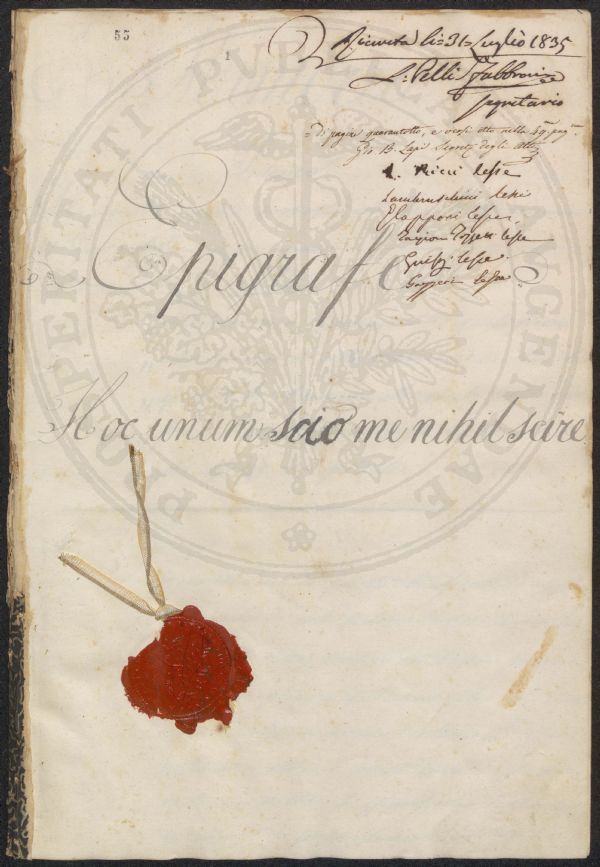 55
1
Ricevuta li = 31 = Luglio 1835
L: Pelli Fabbroni
Segretario
= Di pagine quarantotto, e versi otto nella 49. pag.
B. Lapi Segret. degli Atti
L. Ricci lesse
Lambruschini lesse
Capponi lesse
Targioni Tozzetti lesse
lesse
Gazzeri lesse
Epigrafe
Hoc unum scio me nihil scire
PROSPERITATI PUBLICAE AUGENDAE